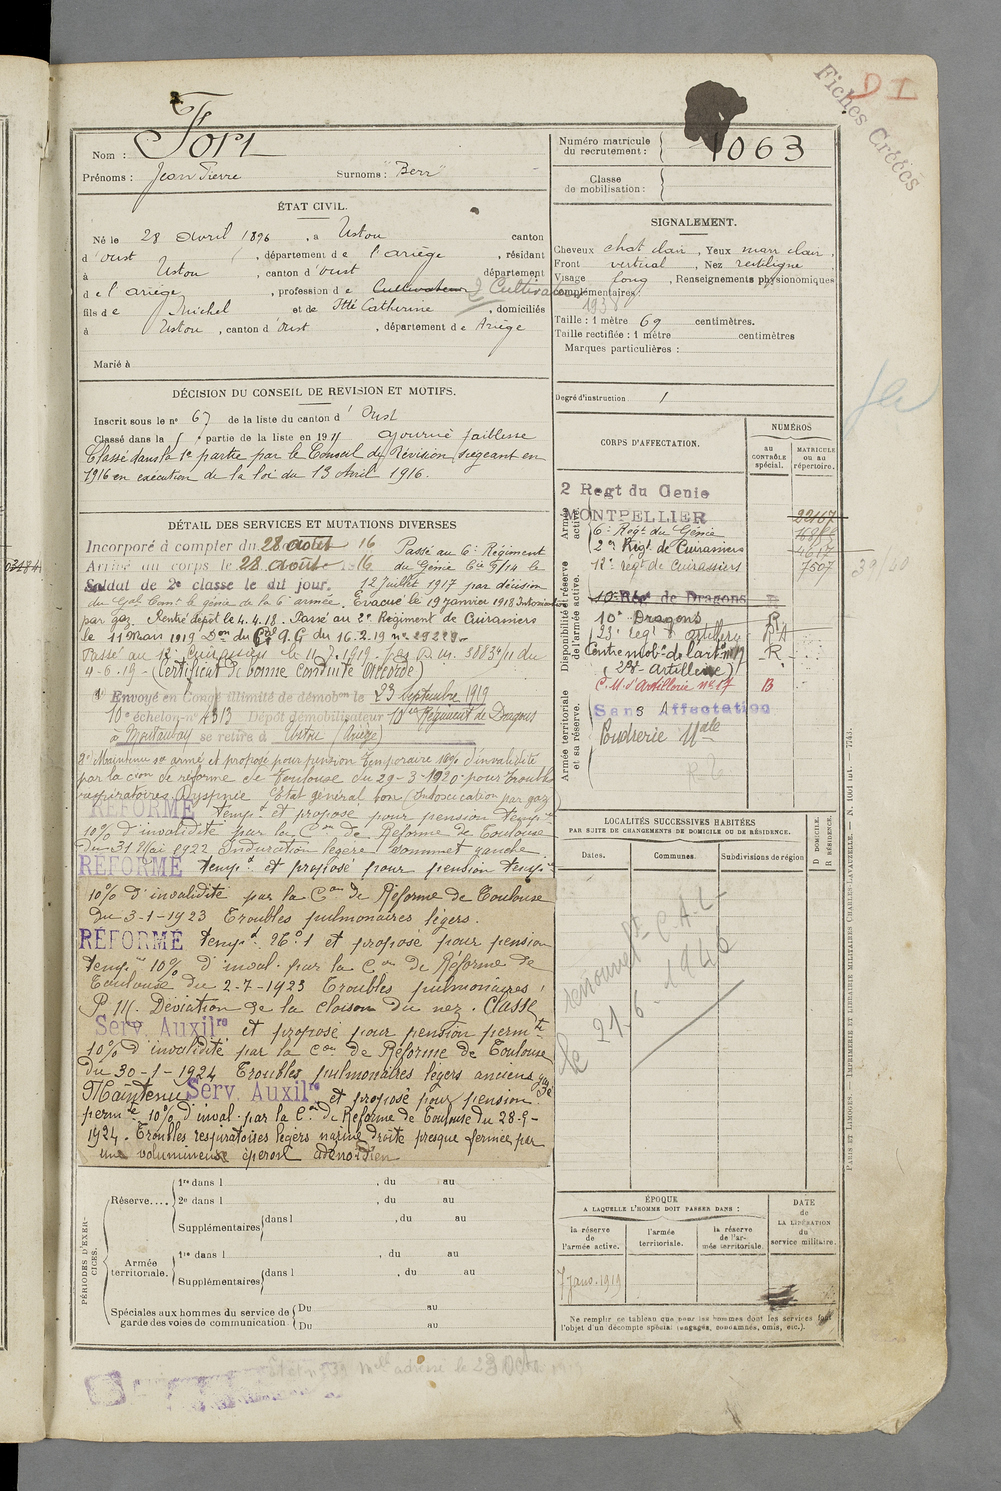 D I
Fiches Créées
Nom : Fort
Prénoms : Jean Pierre Surnoms : "Berr"
Numéro matricule du recrutement : 1063
Classe de mobilisation :
ÉTAT CIVIL.
Né le 28 avril 1896, à Ustou canton
d'Oust, département de l'Ariège, résidant
à Ustou, canton d'Oust département
de l'Ariège, profession de Cultivateur 2 Cultivateur
fils de Michel et de Itté Catherine, domiciliés
à Ustou, canton d'Oust, département de Ariège
Marié à
SIGNALEMENT.
Cheveux chat clair, Yeux marr clair,
Front vertical, Nez rectiligne
Visage long, Renseignements physionomiques
complémentaires :
1938
Taille : 1 mètre 69 centimètres.
Taille rectifiée : 1 mètre centimètres
Marques particulières :
Degré d'instruction. 1
DÉCISION DU CONSEIL DE REVISION ET MOTIFS.
Inscrit sous le no 67 de la liste du canton d'Oust
Classé dans la partie de la liste en 19 Ajourné faiblesse
Classé dans la 1e partie par le Conseil de Révision siégeant en
1916 en exécution de la loi du 13 avril 1916.
DÉTAIL DES SERVICES ET MUTATIONS DIVERSES
Incorporé à compter du 28 août 16 Passé au 6e Régiment
Arrivé au corps le 28 août 1916 du Génie Cie 9/14 le
Soldat de 2e classe le dit jour. 12 Juillet 1917 par décision
du Gal Comt le génie de la 6e armée. Evacué le 19 janvier 1918 Intoxication
par gaz. Rentré dépôt le 4.4.18. Passé au 2e Régiment de Cuirassiers
le 11 Mars 1919 Don du Gal G.Q.G du 16-2-19 no 29229-
Passé au 12e Cuirassiers le 11-7-1919 -
4-6-19 - (Certificat de bonne conduite accordé)
1o Envoyé en Congé illimité de démobon le 23 Septembre 1919
10e échelon no 4313 Dépôt démobilisateur 10ème Régiment de Dragons
à Montauban se retire à Ustou (Ariège)
2o Maintenu sce armé et proposé pour pension temporaire 10% d'invalidité
par la cion de réforme de Toulouse du 29-3-1920 pour troubles
respiratoires Dyspnée Etat général bon (Intoxication par gaz)
RÉFORMÉ tempt et proposé pour pension tempre
10% d'invalidité par la Con de Réforme de Toulouse
du 31 Mai 1922 Induration légère sommet gauche
RÉFORMÉ tempt et proposé pour pension tempre
10% d'invalidité par la Con de Réforme de Toulouse
du 3-1-1923 Troubles pulmonaires légers.
RÉFORMÉ tempt No 1 et proposé pour pension
tempre 10% d'inval. par la Con de Réforme de
Toulouse du 2-7-1923 Troubles pulmonaires
Déviation de la cloison du nez. Classé
Serv. Auxilre et proposé pour pension permte
10% d'invalidité par la Con de Réforme de Toulouse
du 30-1-1924 Troubles pulmonaires légers anciens gazé
Maintenu Serv. Auxilre et proposé pour pension
permte 10% d'inval. par la Con de Réforme de Toulouse du 28-9-
1924. Troubles respiratoires légers narine droite presque fermée par
une volumineux éperon adénoïdien
CORPS D'AFFECTATION.
NUMÉROS
au CONTRÔLE spécial.
MATRICULE ou au répertoire.
Armée active.
2 Regt du Genie
MONTPELLIER 22167
6e Regt du Génie
2me Régt de Cuirassiers 4617
12e régt de Cuirassiers 7507
39/40
Disponibilité et réserve de l'armée active.
10e Rég de Dragons
10e Dragons R
23e regt d'artillery RA
Centre mobon de l'artie no 17 R
(23e Artillerie)
C.M. d'Artillerie no 17 B
Armée territoriale et sa réserve.
Sans Affectation
Poudrerie Nale
LOCALITÉS SUCCESSIVES HABITÉES
PAR SUITE DE CHANGEMENTS DE DOMICILE OU DE RÉSIDENCE.
Dates. Communes. Subdivisions de région
D DOMICILE. R RÉSIDENCE.
renouvelt C.A.L
le 21.6.1946
PÉRIODES D'EXERCICES.
Réserve.... 1re dans l , du au
2e dans l , du au
Supplémentaires dans l , du au
Armée territoriale. 1re dans l , du au
Supplémentaires dans l , du au
Spéciales aux hommes du service de garde des voies de communication. Du au
Du au
ÉPOQUE
A LAQUELLE L'HOMME DOIT PASSER DANS :
la réserve de l'armée active.
l'armée territoriale.
la réserve de l'armée territoriale.
DATE de LA LIBÉRATION du service militaire.
7 janv. 1919
Ne remplir ce tableau que pour les hommes dont les services font
l'objet d'un décompte spécial (engagés, condamnés, omis, etc.).
PARIS ET LIMOGES. — IMPRIMERIE ET LIBRAIRIE MILITAIRES CHARLES-LAVAUZELLE. —
adressé le 23 Octe